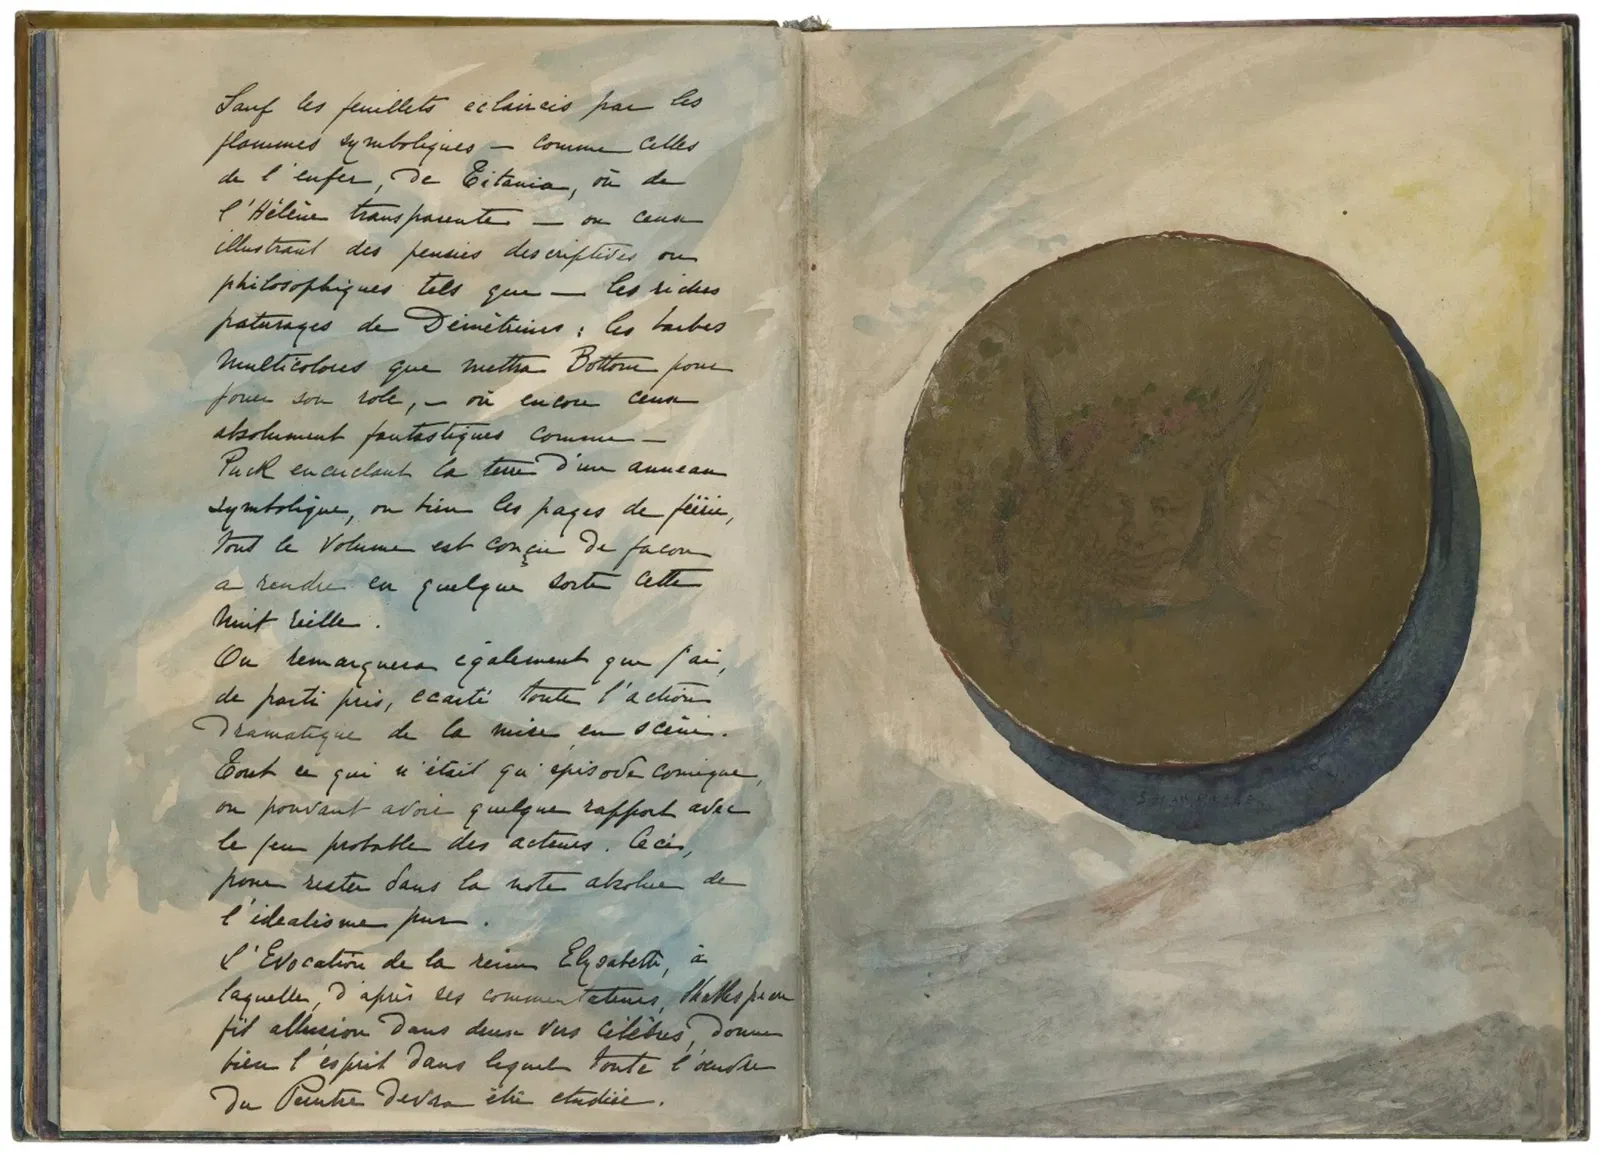 Sauf les feuillets eclaircis par les
flammes symboliques — comme celles
de l'enfer, de Titania, ou de
l'Hélène transparente — ou ceux
illustrant des pensées descriptives ou
philosophiques tels que — les riches
paturages de Démétrius ; les barbes
multicolores que mettra Bottom pour
jouer son role, — ou encore ceux
absolument fantastiques comme —
Puck encerclant la terre d'un anneau
symbolique, ou bien les pages de féerie,
tout le volume est conçu de facon
a rendre en quelque sorte cette
nuit réelle.
On remarquera également que j'ai,
de parti pris, ecarté toute l'action
dramatique de la mise en scène.
Tout ce qui n'était qu'episode comique,
ou pouvant avoir quelque rapport avec
le jeu probable des acteurs. Ceci,
pour rester dans la note absolue de
l'idealisme pur.
L'Evocation de la reine Elysabeth, à
laquelle, d'après ses commentateurs, Shakspeare
fit allusion dans deux vers célèbres, donne
bien l'esprit dans lequel toute l'œuvre
du Peintre devra être etudiée.